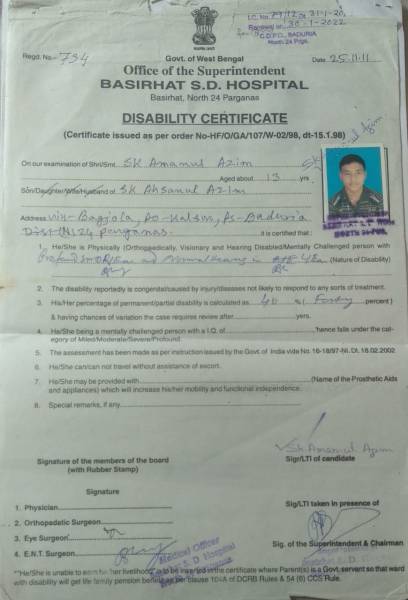 I.C. No. 79/12 Dt 31-1-20,
30-1-2022
C.D.P.O., BADURIA
North 24 Pgs.
Regd. No- 754
Govt. of West Bengal
Date 25.11.11
Office of the Superintendent
BASIRHAT S.D. HOSPITAL
Basirhat, North 24 Parganas
DISABILITY CERTIFICATE
(Certificate issued as per order No-HF/O/GA/107/W-02/98, dt-15.1.98)
On our examination of Shri/Smt. SK Amanul Azim
Aged about 13 yrs
Son/Daughter/Wife/Husband of SK Ahsanul Azim
Address Vill- Bagjola, PO- Kalsur, Ps- Baduria
Dist (N) 24 Parganas. it is certified that :
1. He/She is Physically (Orthopaedically, Visionary and Hearing Disabled/Mentally Challenged person with
Profound in Ear and Normal hearing in Ear (Nature of Disability)
2. The disability reportedly is congenital/caused by injury/diseases not likely to respond to any sorts of treatment.
3. His/Her percentage of permanent/partial disability is calculated as 40 % ( Forty percent )
& having chances of variation the case requires review after yers.
4. He/She being a mentally challenged person with a I.Q. of hance falls under the cat-
egory of Miled/Moderate/Severe/Profound.
5. The assessment has been made as per instruction issued by the Govt. of India vide No. 16-18/97-NI. Dt. 18.02.2002
6. He/She can/can not travel without assistance of escort.
7. He/She may be provided with (Name of the Prosthetic Aids
and appliances) which will increase his/her mobility and functional independence.
8. Special remarks, if any
Sk Amanul Azim
Signature of the members of the board
(with Rubber Stamp)
Sigr/LTI of candidate
Signature
Sig/LTI taken in presence of
1. Physician
2. Orthopadatic Surgeon
3. Eye Surgeon
4. E.N.T. Surgeon
Medical Officer
S. D. Hospital
Sig. of the Superintendent & Chairman
"He/She is unable to earn his/her livelihood" is to be inserted in the certificate where Parent(s) is a Govt. servant so that ward
with disability will get life family pension benefit as per clause 104A of DCRB Rules & 54 (6) CCS Rule.